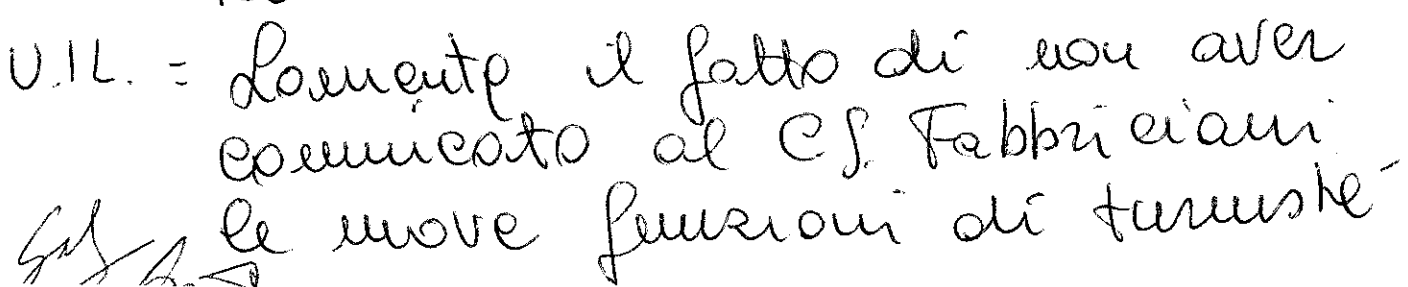 U.I.L. = Lamenta il fatto di non aver
comunicato al CS. Fabbriciani
le nuove funzioni di turnista